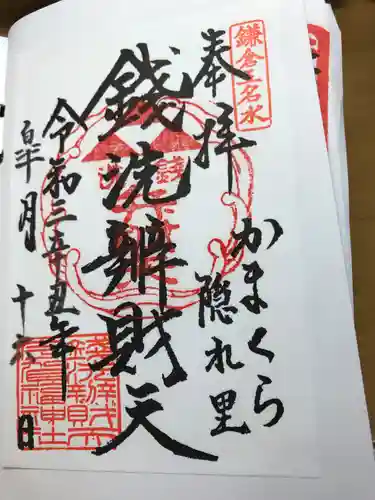 鎌倉五名水
奉拝
かまくら
隠れ里
銭洗辧財天
令和三辛丑年
皐月
十六日